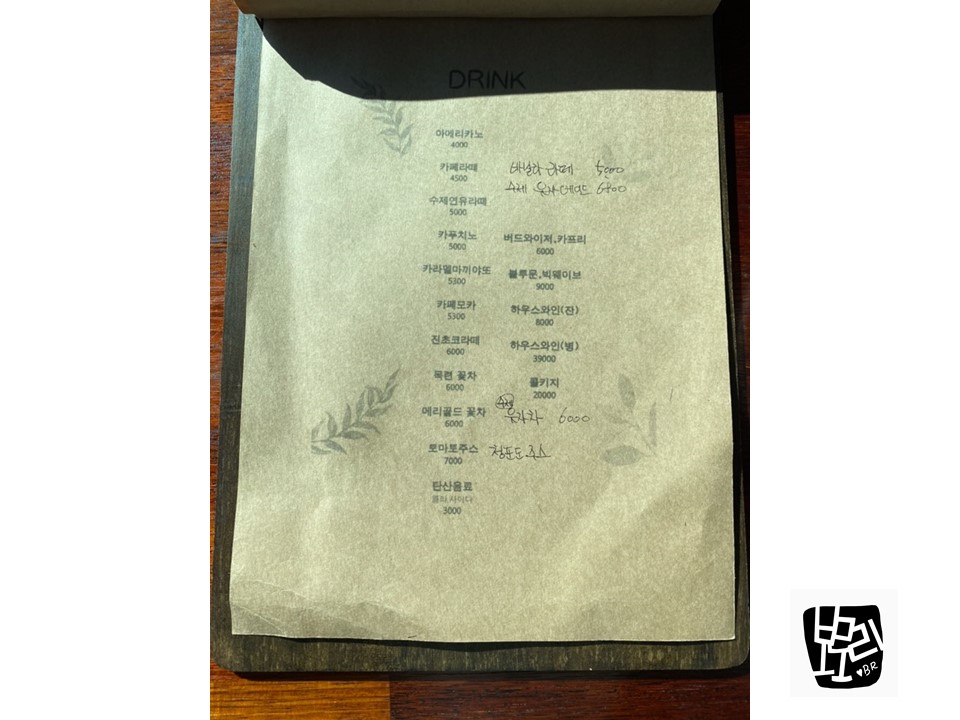 DRINK
아메리카노
4000
카페라떼
4500
바닐라 라떼 5000
수제 유자에이드 6800
수제연유라떼
5000
카푸치노
5000
버드와이저,카프리
6000
카라멜마끼야또
5300
블루문,빅웨이브
9000
카페모카
5300
하우스와인(잔)
8000
진초코라떼
6000
하우스와인(병)
39000
목련 꽃차
6000
콜키지
20000
메리골드 꽃차
6000
수제
유자차 6000
토마토주스
7000
청포도 주스
탄산음료
콜라 사이다
3000
BR